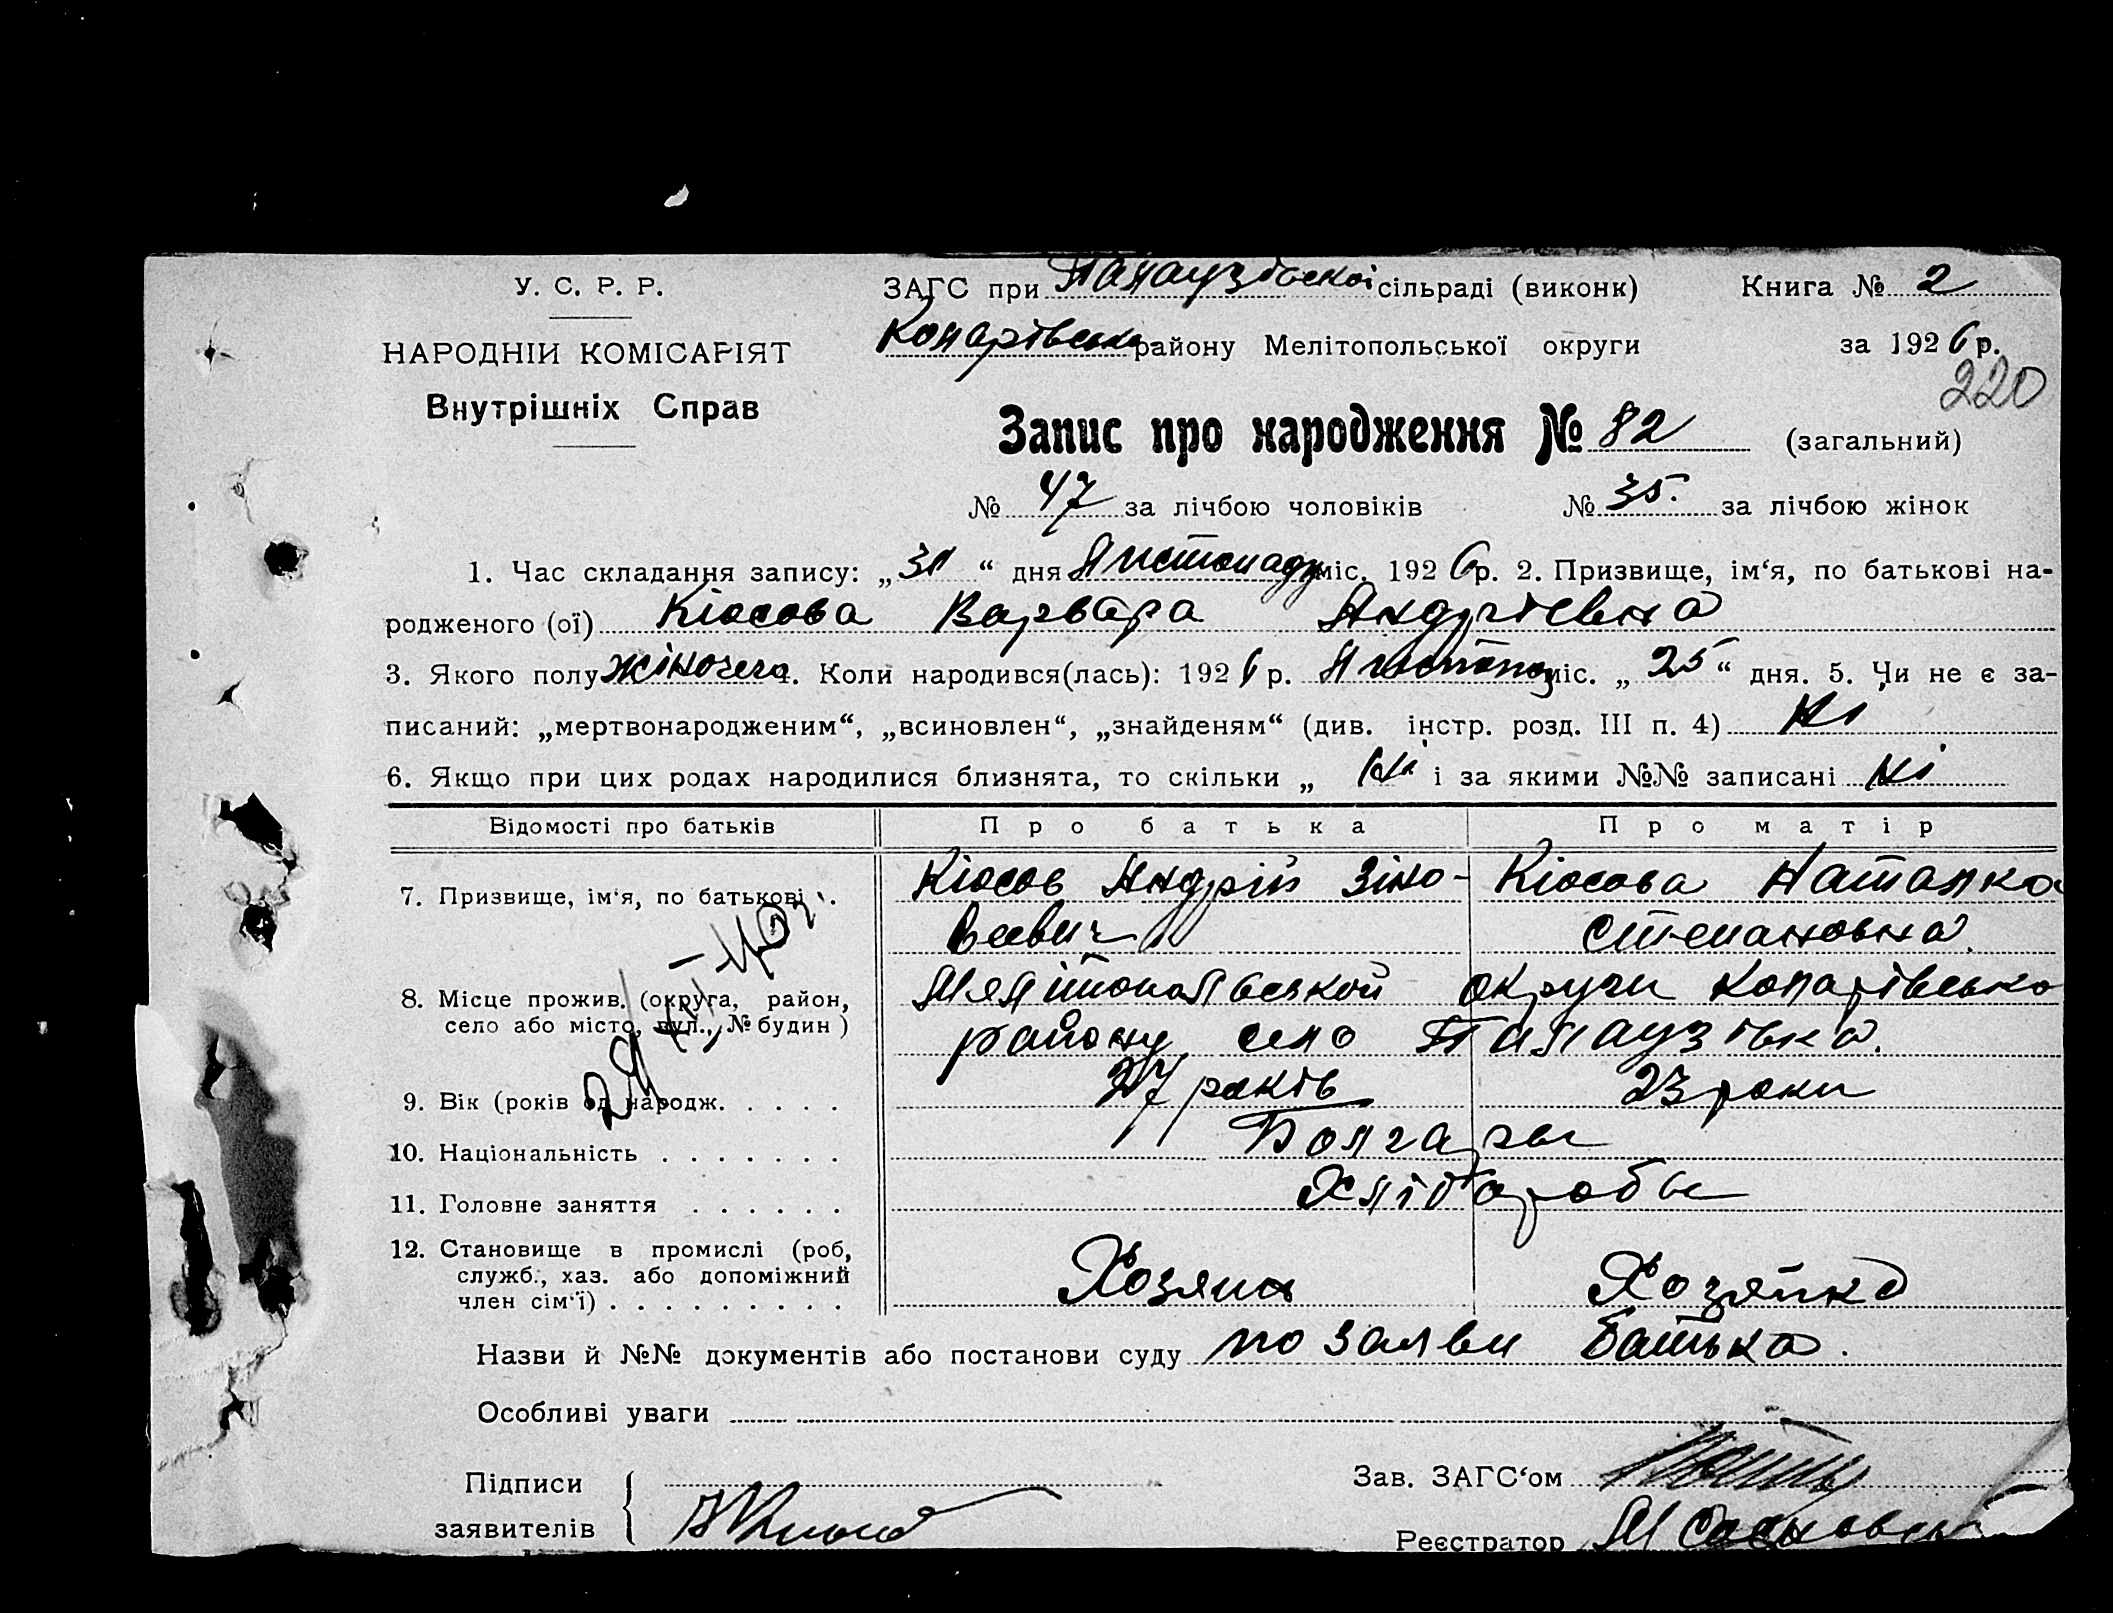 У. С. Р. Р.
НАРОДНІЙ КОМІСАРІЯТ
Внутрішніх Справ
ЗАГС при Палаузовської сільраді (виконк) Книга № 2
Коларівсько району Мелітопольської округи за 1926 р.
220
Запис про народження № 82 (загальний)
№ 47 за лічбою чоловіків № 35. за лічбою жінок
1. Час складання запису: „ “ дня Листопаду міс. 1926 р. 2. Призвище, ім‘я, по батькові на-
родженого (ої) Кіосова Варвара Андріевна
3. Якого полу жіночего 4. Коли народився(лась): 1926 р. Листопад міс. „ 25 “ дня. 5. Чи не є за-
писаний: „мертвонародженим“, „всиновлен“, „знайденям“ (див. інстр. розд. III п. 4) Ні
6. Якщо при цих родах народилися близнята, то скільки „ Ні і за якими №№ записані Ні
Відомості про батьків Про батька Про матір
7. Призвище, ім‘я, по батькові . . Кіосов Андрій Зіно- Кіосова Наталка
веевич Степановна.
8. Місце прожив. (округа, район, Мелітопольськой округи Коларівсько
село або місто, вул., № будин) району село Палаузівка.
9. Вік (років од народж. . . . . 27 років 23 роки
10. Національність . . . . . . . Болгары
11. Головне заняття . . . . . . Хліборобы
12. Становище в промислі (роб, Хозяин Хозяйка
служб., хаз. або допоміжний
член сім‘ї) . . . . . . . . . .
Назви й №№ документів або постанови суду по заяви батька.
Особливі уваги
Підписи
заявителів
Зав. ЗАГС‘ом
Реєстратор